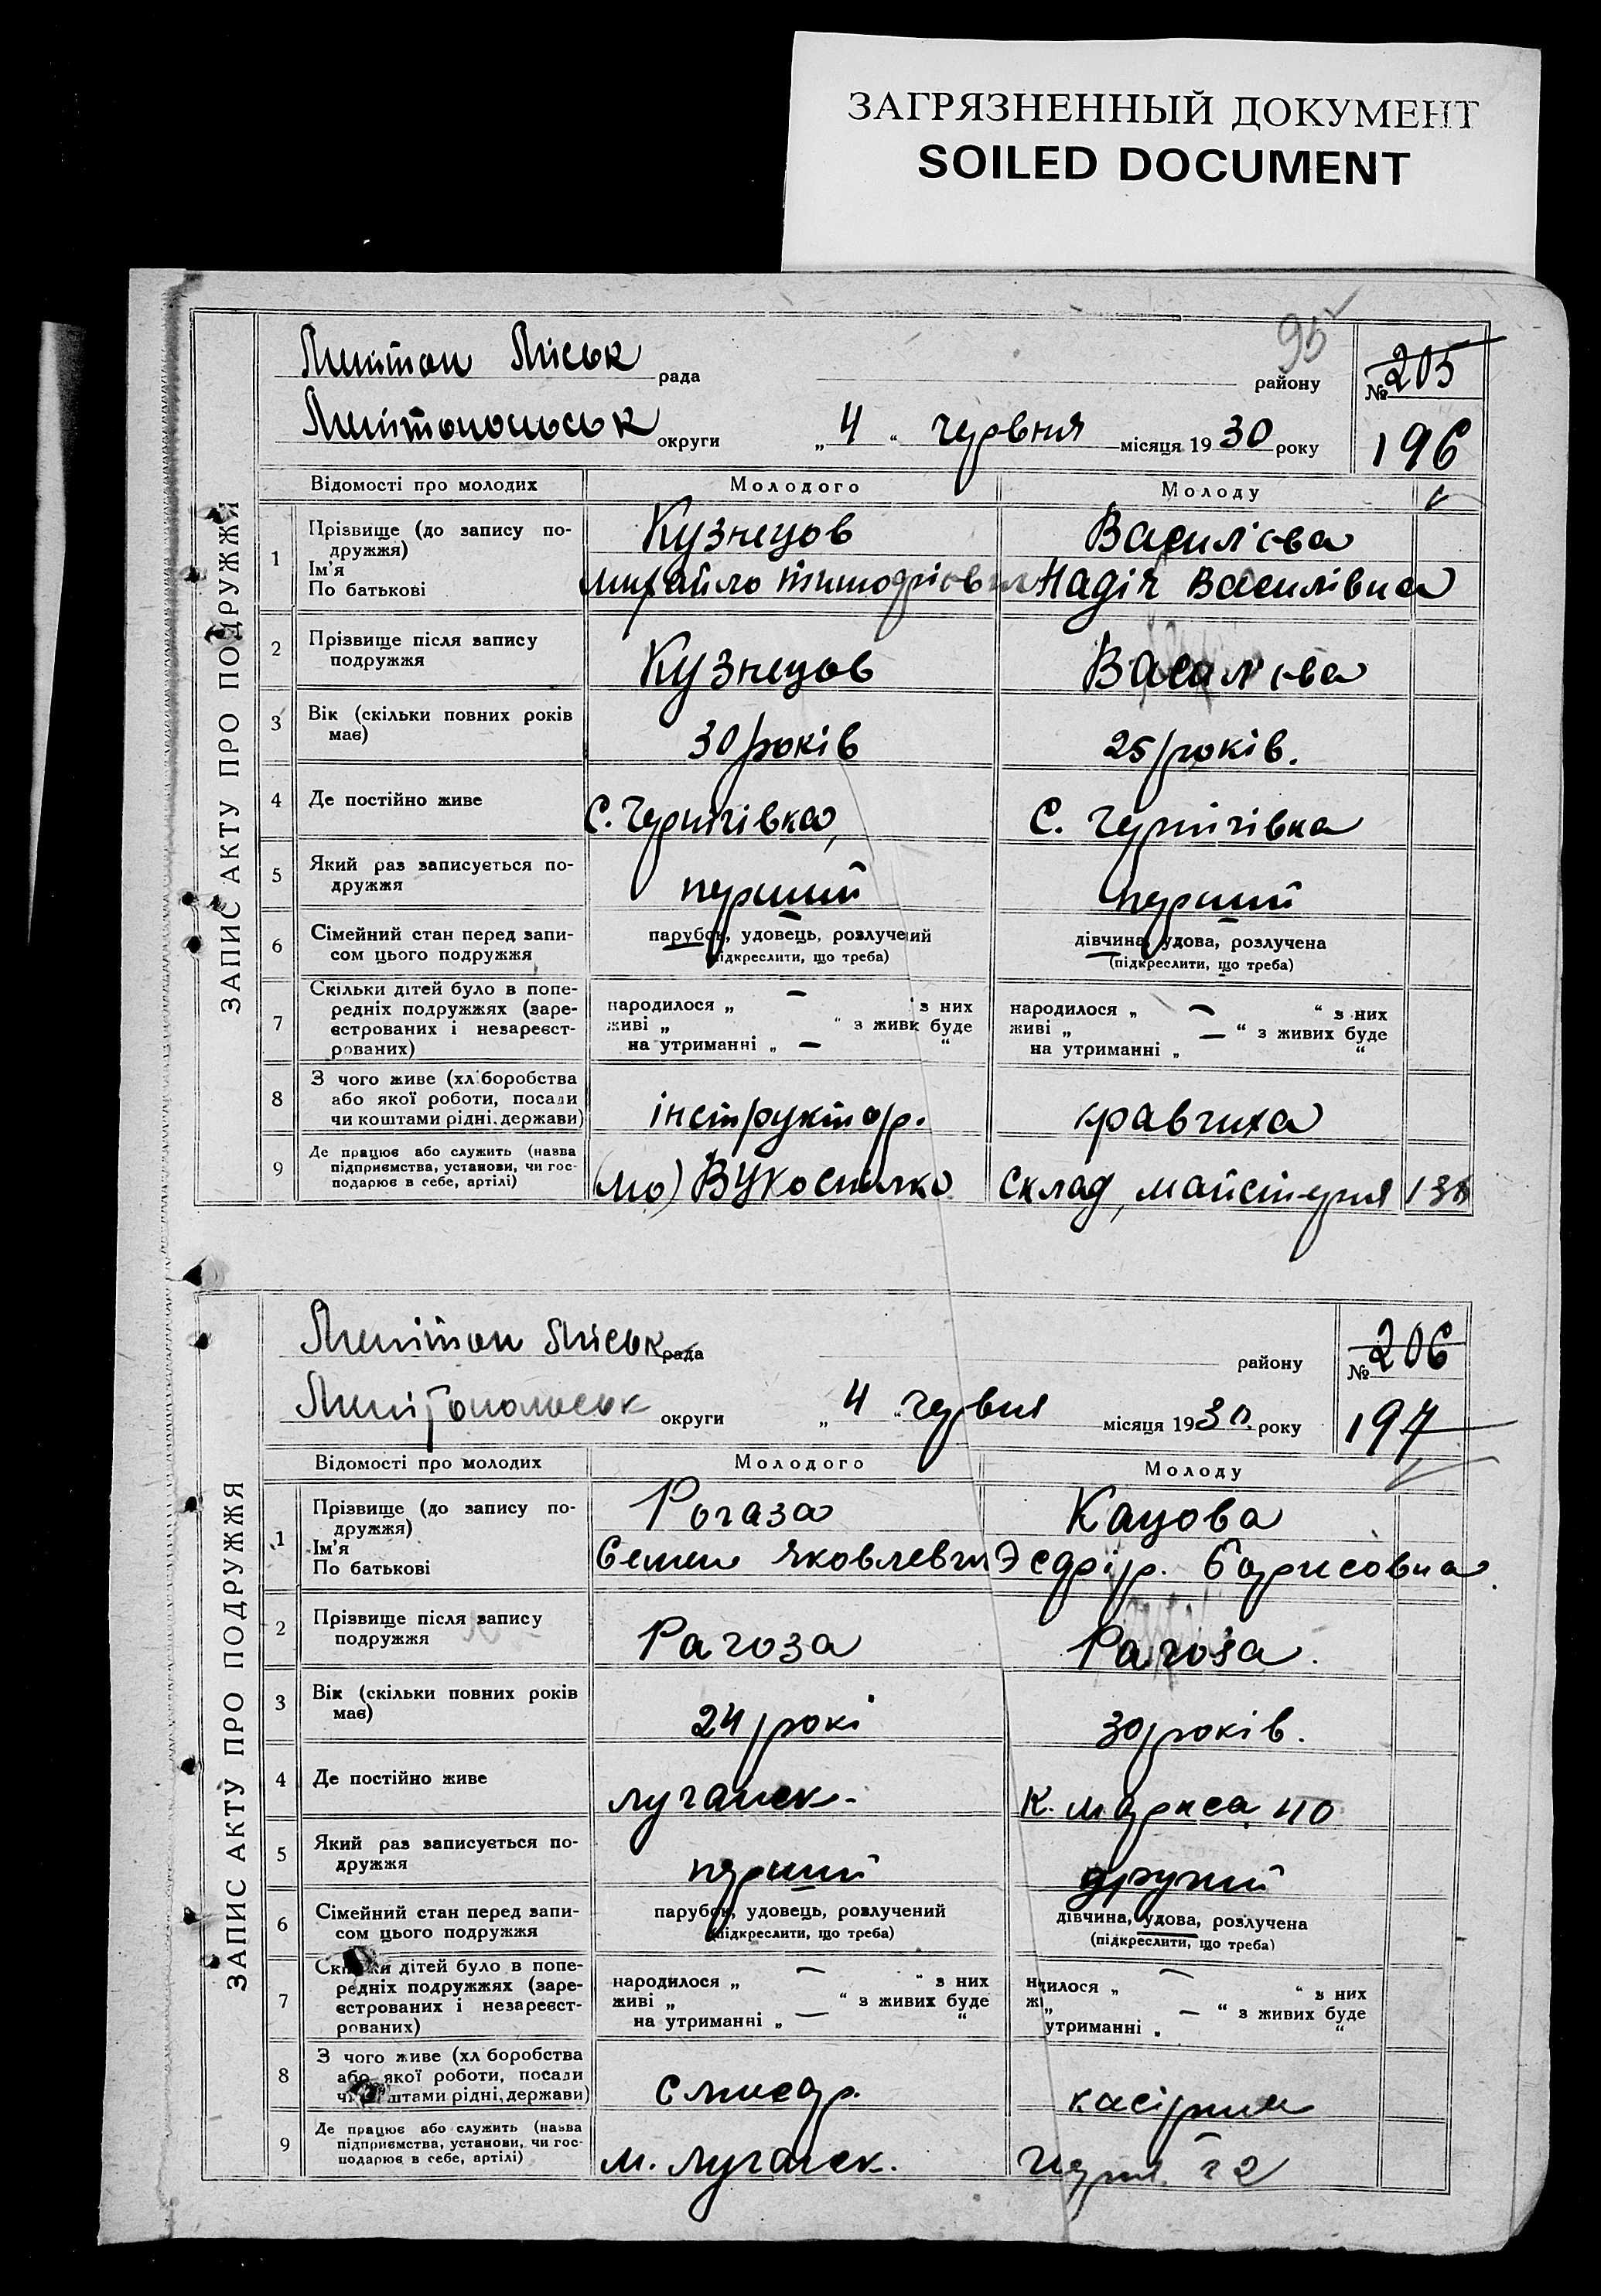 ЗАГРЯЗНЕННЫЙ ДОКУМЕНТ
SOILED DOCUMENT
95
ЗАПИС АКТУ ПРО ПОДРУЖЖЯ
Мелітоп Міськ рада району № 205
Мелітопольськ округи „ 4 “ червня місяця 1930 року 196
Відомості про молодих Молодого Молоду
1 Прізвище (до запису по-
дружжя) Кузнецов Васил'єва
Ім'я
По батькові Михайло Надія Василівна
2 Прізвище після запису
подружжя Кузнецов Васил'єва
3 Вік (скільки повних років
має) 30 років 25 років.
4 Де постійно живе С. Чернігівка С. Чернігівка
5 Який раз записується по-
дружжя перший перший
6 Сімейний стан перед запи-
сом цього подружжя парубок, удовець, розлучений дівчина, удова, розлучена
(підкреслити, що треба) (підкреслити, що треба)
7 Скільки дітей було в попе-
редніх подружжях (заре-
єстрованих і незареєст-
рованих)
народилося „ — “ з них народилося „ — “ з них
живі „ “ з живих буде живі „ — “ з живих буде
на утриманні „ — “ на утриманні „ “
8 З чого живе (хліборобства
або якої роботи, посади
чи коштами рідні, держави) інструктор. кравчиха
9 Де працює або служить (назва
підприємства, установи, чи гос-
подарює в себе, артілі) Вукоспілко Склад, майстерня
ЗАПИС АКТУ ПРО ПОДРУЖЖЯ
Мелітоп Міськ рада району № 206
Мелітопольськ округи „ 4 “ червня місяця 1930 року 197
Відомості про молодих Молодого Молоду
1 Прізвище (до запису по-
дружжя) Рогаза Кацова
Ім'я
По батькові Семен Яковлевич Борисовна
2 Прізвище після запису
подружжя Рагоза Рагоза.
3 Вік (скільки повних років
має) 24 рокі 30 років.
4 Де постійно живе Луганск. К. Маркса 40
5 Який раз записується по-
дружжя перший другий
6 Сімейний стан перед запи-
сом цього подружжя парубок, удовець, розлучений дівчина, удова, розлучена
(підкреслити, що треба) (підкреслити, що треба)
7 Скільки дітей було в попе-
редніх подружжях (заре-
єстрованих і незареєст-
рованих)
народилося „ — “ з них нилося „ — “ з них
живі „ “ з живих буде ж „ — “ з живих буде
на утриманні „ — “ утриманні „ “
8 З чого живе (хліборобства
або якої роботи, посади
чи коштами рідні, держави) Слюсар. касірша
9 Де працює або служить (назва
підприємства, установи, чи гос-
подарює в себе, артілі) м. Луганск.